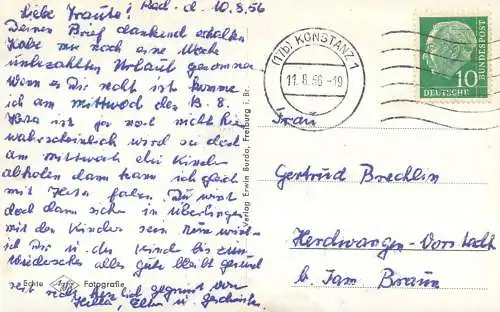 Liebe Traute! Rad. d. 10.8.56
Deinen Brief dankend erhalten
habe mir noch eine Woche
unbezahlten Urlaub genommen
Wenn es Dir recht ist komme
ich am Mittwoch den 1 . 8.
ist ja noch nicht hier
wahrscheinlich wird sie doch
am Mittwoch die Kinder
abholen dann kann ich gleich
mit fahren. Du wirst
doch dann sicher in Überlingen
mit den Kindern sein
ich Dir u. den Kinder bis zum
Wiedersehen alles Gute bleibt gesund
seit recht herzlich gegrüsst von
u. Geschwister
Echte Agfa Fotografie
Verlag Erwin Burda, Freiburg i. Br.
(17b) KONSTANZ 1
11.8.56-19
DEUTSCHE BUNDESPOST
10
Frau
Gertrud Brechlin
Herdwangen-
b.